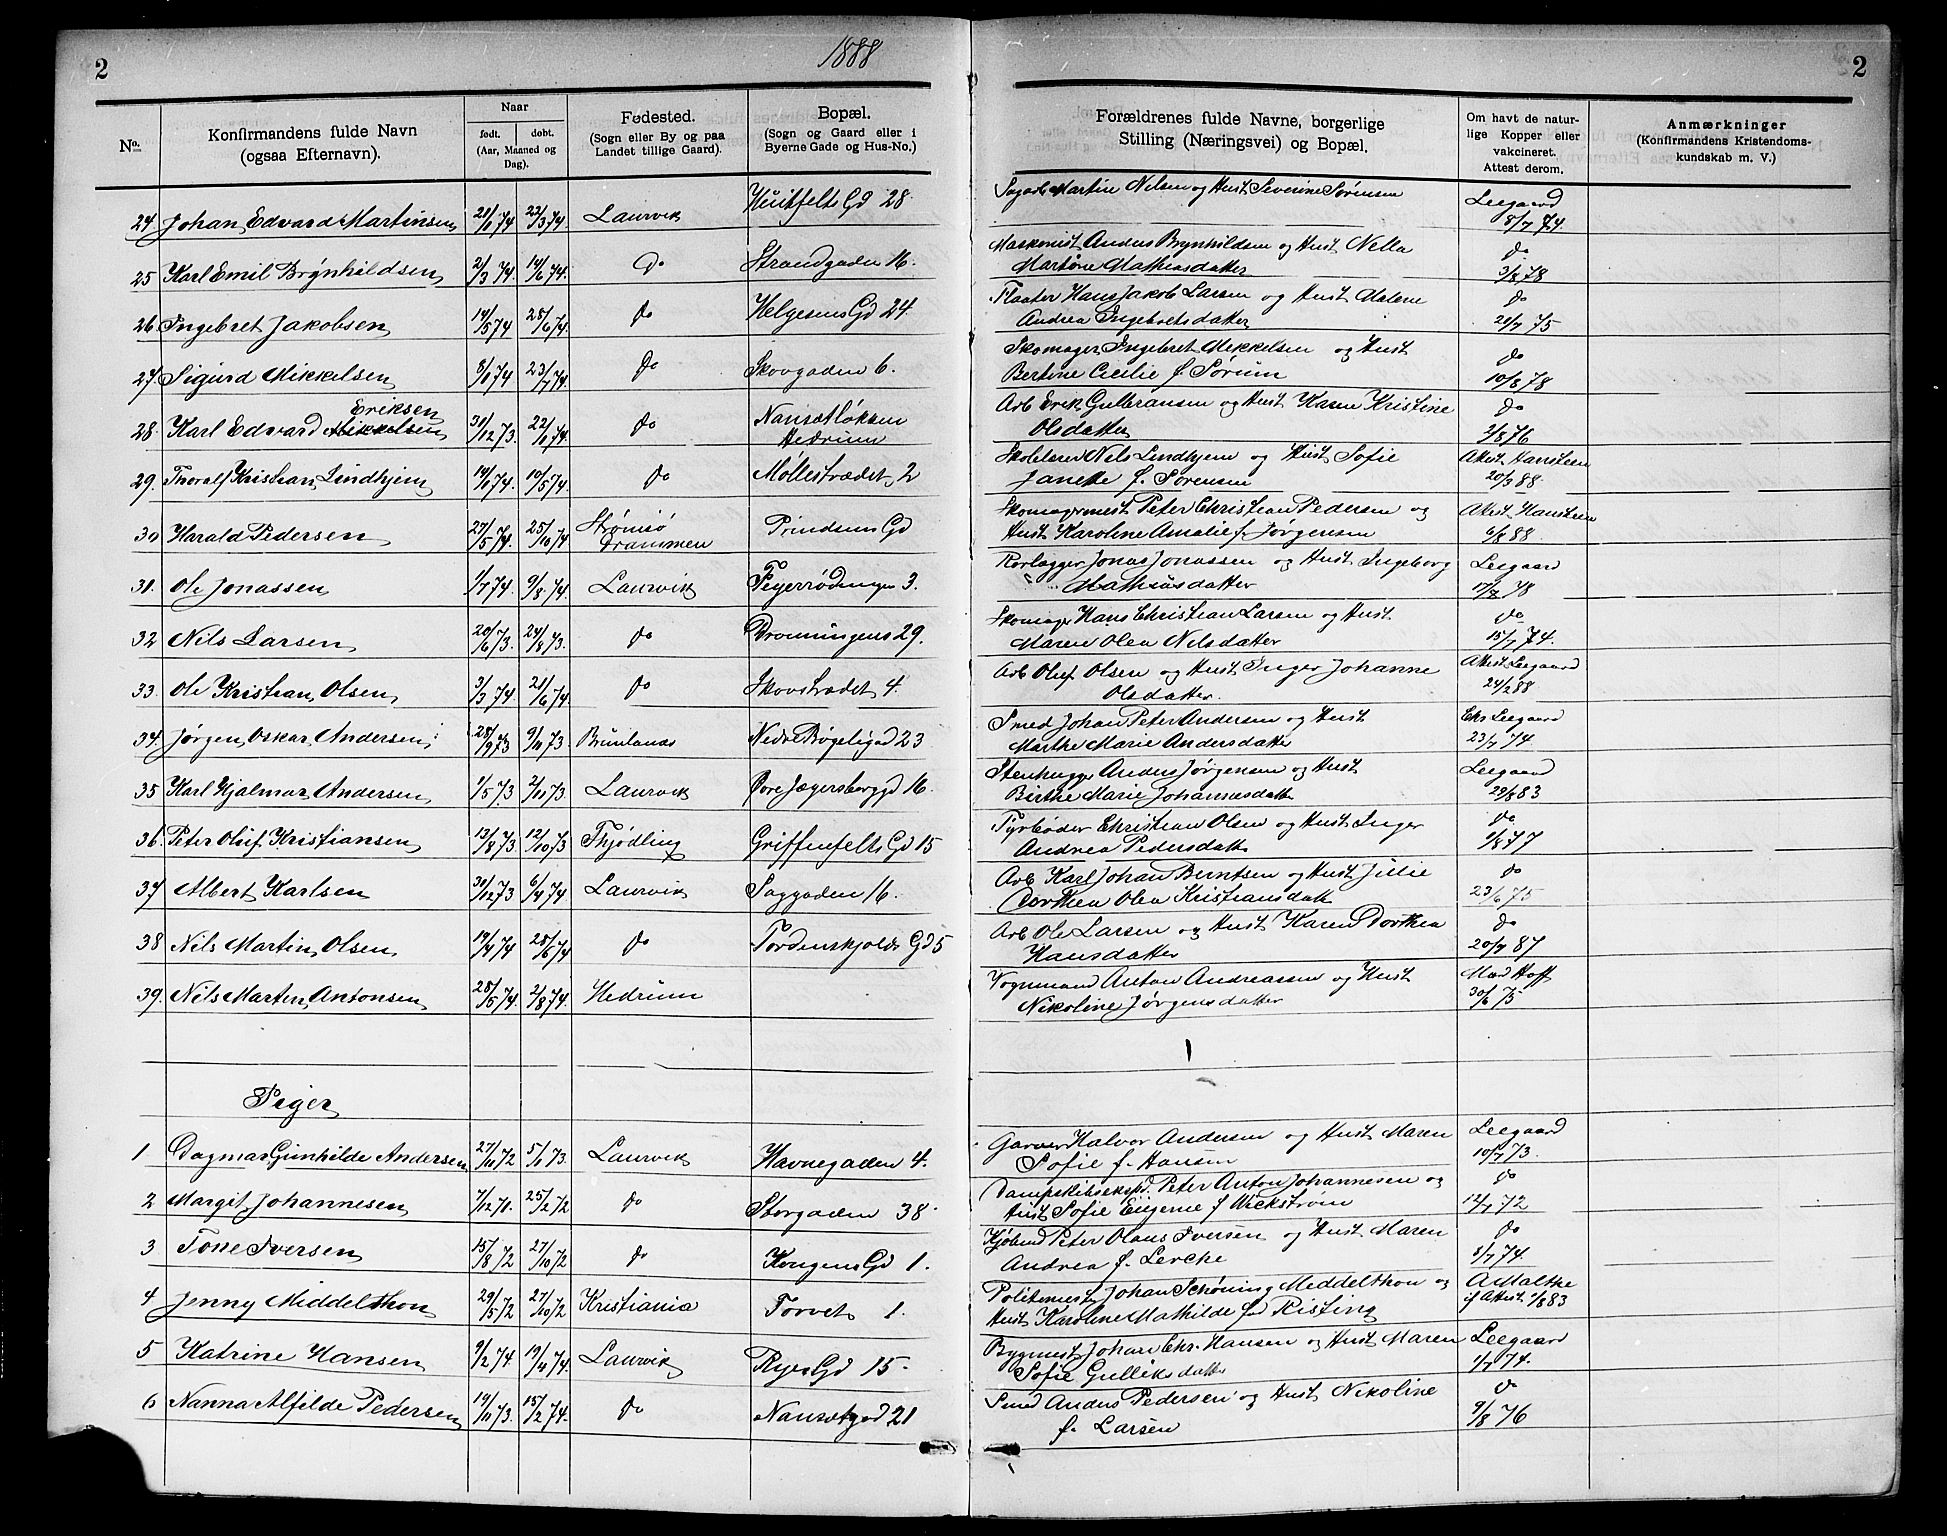 2
1888
2
No.
Konfirmandens fulde Navn
(ogsaa Efternavn).
Naar
født.
døbt.
(Aar, Maaned og Dag).
Fødested.
(Sogn eller By og paa
Landet tillige Gaard).
Bopæl.
(Sogn og Gaard eller i
Byerne Gade og Hus-No.)
Forældrenes fulde Navne, borgerlige
Stilling (Næringsvei) og Bopæl.
Om havt de natur-
lige Kopper eller
vakcineret.
Attest derom.
Anmærkninger
(Konfirmandens Kristendoms-
kundskab m. V.)
24 Johan Edvard Martinsen 21/1 74 22/3 74 Laurvik Huitfelts Gd 28. Sagarb Martin Nilsen og Hust Severine Sørensen Leegaard
8/7 74
25 Karl Emil Brynhildsen 2/3 74 14/6 74. Do Strandgaden 16. Maskinist Anders Brynhildsen og Hust Nella do
Martine Mathiasdatter 3/8 78
26 Ingebret Jakobsen 14/5 74 28/6 74. do Helgesens Gd 24. Flaater Hans Jakob Larsen og Hust Malene do
Andrea Ingebretsdatter 21/7 75
27. Sigurd Mikkelsen 8/1 74 23/7 74. Do Skovgaden 6. Skomager Ingebret Mikkelsen og Hust do
Bertine Cecilie f. Sørum 10/8 78
Eriksen
28. Karl Edvard Mikkelsen 31/12 73. 22/1 74. do Nansetløkken Arb Erik Gulbransen og Hust Karen Kristine do
Hedrum Olsdatter 2/8 76
29. Thoralf Kristian Lindhjem 14/1 74. 10/5 74. do Møllestrædet 2 Skolelærer Nils Lindhjem og Hust Sofie Attest Hansteen
Janette f. Sørensen 20/3 88.
30 Harald Pedersen 27/5 74. 25/10 74 Strømsø Prindsens Gd Skomagermest Peter Christian Pedersen og Attest Hansteen
Drammen Hust Karoline Amalie f. Jørgensen 6/2 88.
31. Ole Jonassen 1/7 74. 9/8 74 Laurvik Fejerrødningen 3. Rorlægger Jonas Jonassen og Hust Ingeborg Leegaard
Mathiasdatter 17/7 78
32 Nils Larsen 20/6 73. 24/8 73. do Dronningens 29. Skomager Hans Christian Larsen og Hust do
Maren Olea Nilsdatter 15/7 74.
33. Ole Kristian Olsen 3/3 74 21/6 74. do Skovstrædet 4. Arb Oluf Olsen og Hust Inger Johanne Attest Leegaard
Olsdatter. 24/2 88
34. Jørgen Oskar Andersen 28/9 73 9/11 73. Brunlanes Nedre Bøgeligad 23 Smed Johan Peter Andersen og Hust Leegaard
Marthe Marie Andersdatter 23/7 74.
35 Karl Hjalmar Andersen 1/5 73 2/11 73 Laurvik Øvre Jægersborggd 16. Stenhugger Anders Jørgensen og Hust Leegaard
Birthe Marie Johannesdatt 29/8 83
36. Peter Oluf Kristiansen 13/8 73 12/10 73 Thjødling Griffenfelts Gd 15 Fyrbøder Christian Olsen og Hust Inger do
Andrea Pedersdatt 1/8 77
37 Albert Karlsen 31/12 73 6/4 74 Laurvik Saggaden 16. Arb Karl Johan Berntsen og Hust Julie do
Dorthea Olea Kristiansdatt 23/6 75
38 Nils Martin Olsen 19/4 74 28/6 74 do Tordenskjolds Gd 5 Arb Ole Larsen og Hust Karen Dorthea do
Hansdatter 20/7 87
39. Nils Martin Antonsen 28/5 74. 2/8 74. Hedrum Vognmand Anton Andreassen og Hust Mad Hoff
Nikoline Jørgensdatter 30/6 75
Piger
1 Dagmar Gunhilde Andersen 27/10 72 5/1 73. Laurvik Havnegaden 4. Garver Halvor Andersen og Hust Maren Leegaard
Sofie f. Hansen 10/7 73.
2 Margit Johannesen 7/12 71. 25/2 72 do Storgaden 38. Dampskibseksped. Peter Anton Johannesen og do
Hust Sofie Eugenie f Wickstrøm 12/7 72
3 Tone Iversen 15/8 72 27/10 72 do Kongens Gd 1. Kjøbmd Peter Olaus Iversen og Hust Maren do
Andrea f. Lerche 8/7 74.
4 Jenny Middelthon 29/5 72 27/10 72 Kristiania Torvet 1. Politimest Johan Schøning Middelthon og A Malthe
Hust Karoline Mathilde fød Risting if Attest 1/8 83
5 Katrine Hansen 9/2 74. 19/4 74 Laurvik Ryes Gd 15. Bygmest Johan Chr. Hansen og Hust Maren Leegaard
Sofie Gulliksdatt 1/7 74.
6 Nanna Alfilde Pedersen 14/11 73. 15/2 74. do Nansetgad 21 Smed Anders Pedersen og Hust Nikoline do
f. Larsen 9/8 76